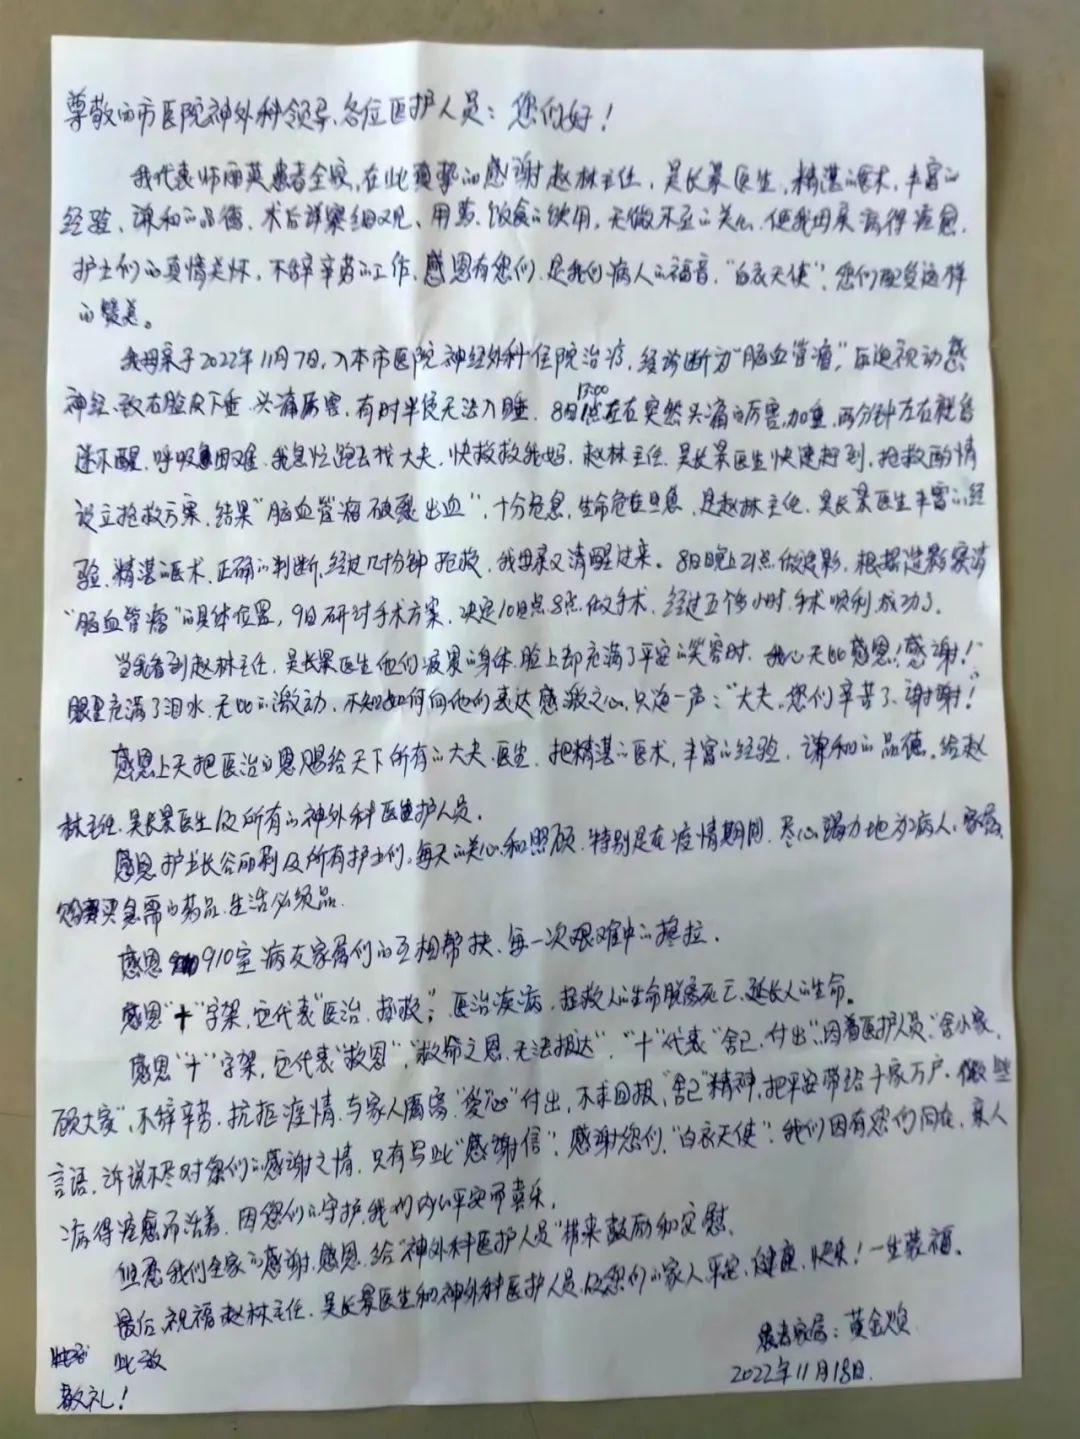 尊敬的市医院神外科领导、各位医护人员：您们好！
我代表师丽英患者全家，在此真挚的感谢赵林主任，吴长景医生，精湛的医术，丰富的
经验、谦和的品德，术后详察细叉见、用药、饮食的饮用，无微不至的关心，使我母亲病得痊愈，
护士们的真情关怀，不辞辛劳的工作，感恩有您们，是我们病人的福音，“白衣天使”，您们配受这样
的赞美。
我母亲于2022年11月7日，入本市医院神经外科住院治疗，经诊断为“脑血管瘤”，压迫视动感
神经、致右脸皮下垂、头痛厉害，有时半夜无法入睡，8日13:00点左右突然头痛的厉害，加重，两分钟左右就昏
迷不醒，呼吸困难，我急忙跑去找大夫，快救救我妈，赵林主任、吴长景医生快速赶到，抢救酌情
设立抢救方案，结果“脑血管瘤破裂出血”，十分危急，生命危在旦夕，是赵林主任，吴长景医生丰富的经
验，精湛的医术，正确的判断，经过几十分钟抢救，我母亲又清醒过来。8日晚上21点做造影，根据造影察清
“脑血管瘤”的具体位置，9日研讨手术方案，决定10日点8点做手术，经过五个多小时，手术顺利成功了。
当我看到赵林主任，吴长景医生他们疲累的身体，脸上却充满了平安的笑容时，我心无比感恩！感谢！
眼里充满了泪水，无比的激动，不知如何向他们表达感激之心，只道一声：“大夫，您们辛苦了、谢谢！”
感恩上天把医治的恩赐给天下所有的大夫、医生，把精湛的医术，丰富的经验，谦和的品德，给赵
林主任、吴长景医生及所有的神外科医护人员。
感恩护士长谷丽利及所有护士们，每天的关心和照顾，特别是在疫情期间，尽心竭力地为病人、家属，
购买急需的药品、生活必须品。
感恩910室病友家属们的互相帮扶、每一次艰难中的搀拉。
感恩“十”字架，它代表“医治、拯救”；医治疾病，拯救人的生命脱离死亡、延长人的生命。
感恩“十”字架，它代表“救恩”，“救命之恩，无法报达”，“十”代表“舍己、付出”，因着医护人员“舍小家，
顾大家”，不辞辛劳，抗拒疫情，与家人隔离，“爱心”付出，不求回报，“舍己”精神，把平安带给千家万户，
言语，诉说不尽对您们的感谢之情，只有写此“感谢信”，感谢您们，“白衣天使”，我们因有您们同在，亲人
病得痊愈而活着，因您们的守护，我们内心平安而喜乐，
但愿我们全家的感谢、感恩，给“神外科医护人员”带来鼓励和安慰。
最后，祝福赵林主任，吴长景医生和神外科医护人员，及您们的家人平安、健康、快乐！一生蒙福。
此致
敬礼！
患者家属：黄金焕
2022年11月18日.